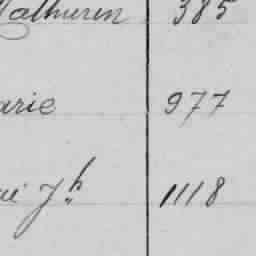 Mathurin 385
arie 977
né Jh 1118